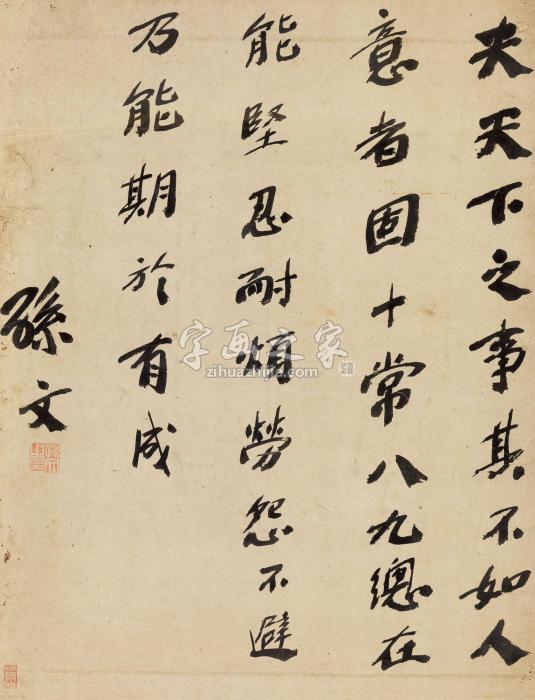 夫天下之事其不如人
意者固十常八九總在
能堅忍耐煩勞怨不避
乃能期於有成
孫文
字画之家
zihuazhijia.com